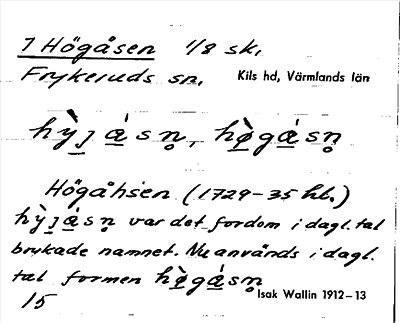 7 Högåsen 1/8 sk.
Frykeruds sn. Kils hd, Värmlands län
hỳ̠ȷá̠sn̥, hø̠̀gá̠sn̥
Högåhs'en (1729-35 hl.)
hỳ̠ȷá̠sn̥ var det fordom i dagl. tal
brukade namnet. Nu används i dagl.
tal formen hø̠̀gá̠sn̥
15 Isak Wallin 1912-13